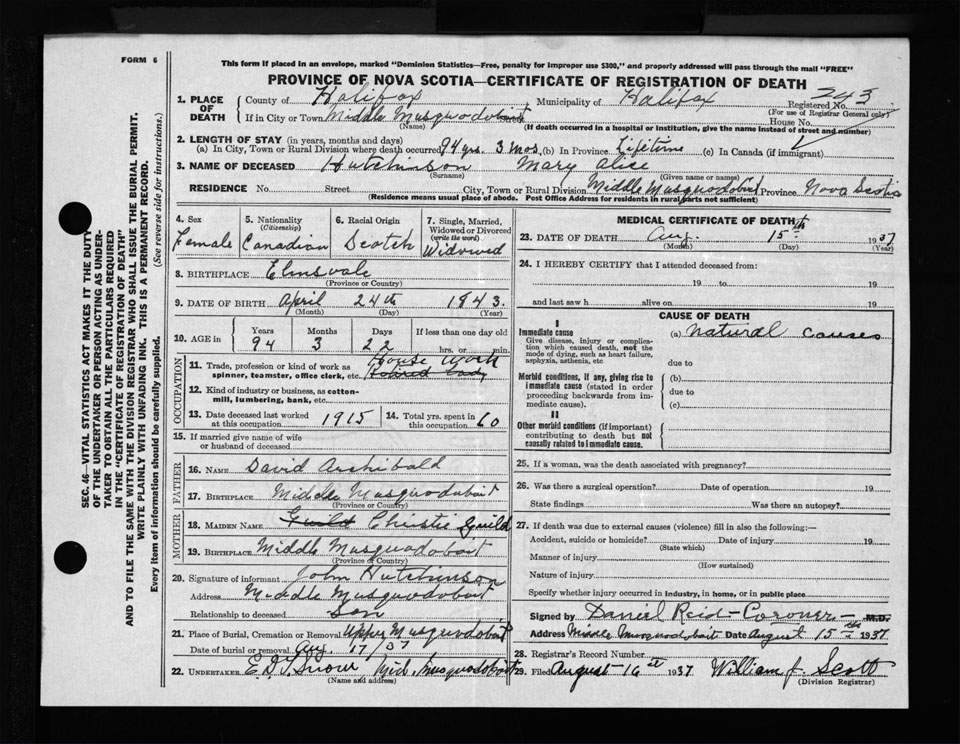 FORM 6
This form if placed in an envelope, marked "Dominion Statistics—Free, penalty for improper use $300," and properly addressed will pass through the mail "FREE"
PROVINCE OF NOVA SCOTIA—CERTIFICATE OF REGISTRATION OF DEATH
1. PLACE OF DEATH County of Halifax Municipality of Halifax Registered No. 243
(For use of Registrar General only)
If in City or Town Middle Musquodoboit House No.
(Name) (If death occurred in a hospital or institution, give the name instead of street and number)
2. LENGTH OF STAY (in years, months and days)
(a) In City, Town or Rural Division where death occurred 94 yrs. 3 Mos. (b) In Province Lifetime (c) In Canada (if immigrant)
3. NAME OF DECEASED Hutchinson Mary Alice
(Surname) (Given name or names)
RESIDENCE No. Street City, Town or Rural Division Middle Musquodoboit Province Nova Scotia
(Residence means usual place of abode. Post Office Address for residents in rural parts not sufficient)
4. Sex Female
5. Nationality (Citizenship) Canadian
6. Racial Origin Scotch
7. Single, Married, Widowed or Divorced (write the word) Widowed
8. BIRTHPLACE Elmsvale
(Province or Country)
9. DATE OF BIRTH April 24th 1843.
(Month) (Day) (Year)
10. AGE in Years Months Days If less than one day old
94 3 22 hrs. or min.
OCCUPATION
11. Trade, profession or kind of work as spinner, teamster, office clerk, etc. House Work Retired Lady
12. Kind of industry or business, as cotton-mill, lumbering, bank, etc.
13. Date deceased last worked at this occupation 1915
14. Total yrs. spent in this occupation 60
15. If married give name of wife or husband of deceased
FATHER
16. NAME David Archibald
17. BIRTHPLACE Middle Musquodoboit
(Province or Country)
MOTHER
18. MAIDEN NAME Guild Christie Guild
19. BIRTHPLACE Middle Musquodoboit
(Province or Country)
20. Signature of informant John Hutchinson
Address Middle Musquodoboit
Relationship to deceased Son
21. Place of Burial, Cremation or Removal Upper Musquodoboit
Date of burial or removal Aug. 17/37
22. UNDERTAKER E.D.G. Snow Mid. Musquodoboit
(Name and address)
MEDICAL CERTIFICATE OF DEATH
23. DATE OF DEATH Aug. 15th 1937
(Month) (Day) (Year)
24. I HEREBY CERTIFY that I attended deceased from:
19 to 19
and last saw h alive on 19
CAUSE OF DEATH
I
Immediate cause (a) Natural causes
Give disease, injury or complication which caused death, not the mode of dying, such as heart failure, asphyxia, asthenia, etc
due to
Morbid conditions, if any, giving rise to immediate cause (stated in order proceeding backwards from immediate cause).
(b)
due to
(c)
II
Other morbid conditions (if important) contributing to death but not causally related to immediate cause.
25. If a woman, was the death associated with pregnancy?
26. Was there a surgical operation? Date of operation 19
State findings Was there an autopsy?
27. If death was due to external causes (violence) fill in also the following:—
Accident, suicide or homicide? Date of injury 19
(State which)
Manner of injury
(How sustained)
Nature of injury
Specify whether injury occurred in industry, in home, or in public place
Signed by Daniel Reid—Coroner— M.D.
Address Middle Musquodoboit Date August 15th 1937
28. Registrar's Record No.
29. Filed August 16 st 1937 William J. Scott
(Division Registrar)
SEC. 46—VITAL STATISTICS ACT MAKES IT THE DUTY OF THE UNDERTAKER OR PERSON ACTING AS UNDERTAKER TO OBTAIN ALL THE PARTICULARS REQUIRED IN THE "CERTIFICATE OF REGISTRATION OF DEATH" AND TO FILE THE SAME WITH THE DIVISION REGISTRAR WHO SHALL ISSUE THE BURIAL PERMIT.
WRITE PLAINLY WITH UNFADING INK. THIS IS A PERMANENT RECORD.
Every item of information should be carefully supplied. (See reverse side for instructions.)